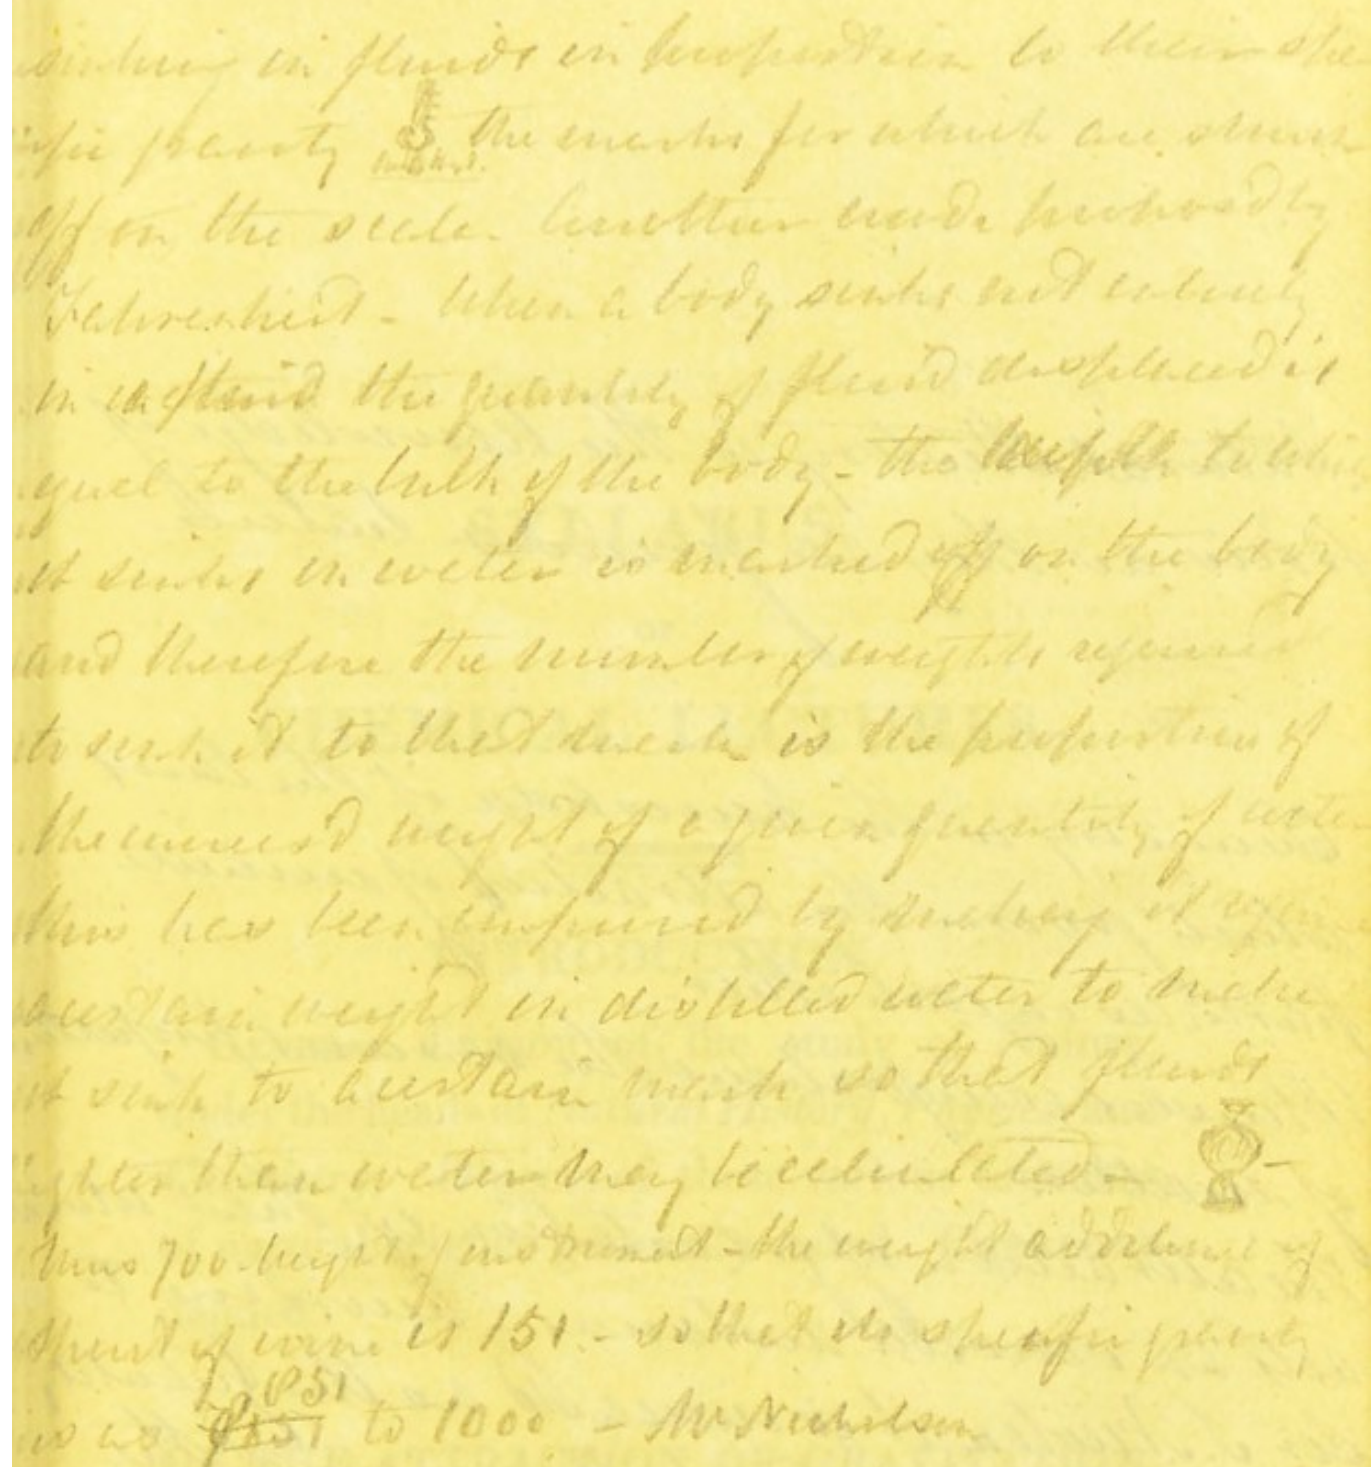 sinking in fluids in proportion to their spe
cific gravity the marks for which are struck
off on the scale. Another made proposed by
Fahrenheit - When a body sinks not entirely
in a fluid the quantity of fluid displaced is
equal to the bulk of the body - the depth to which
it sinks in water is marked off on the body
and therefore the number of weights required
to sink it to that mark is the proportion of
the increasd weight of a given quantity of water
this has been improved by making it
a certain weight in distilled water to make
it sink to a certain mark so that fluids
lighter than water may be calculated -
thus 700 weight of instrument - the weight additional of
spirit of wine is 151. - so that its specific gravity
is as 851 to 1000 - Mr Nicholson